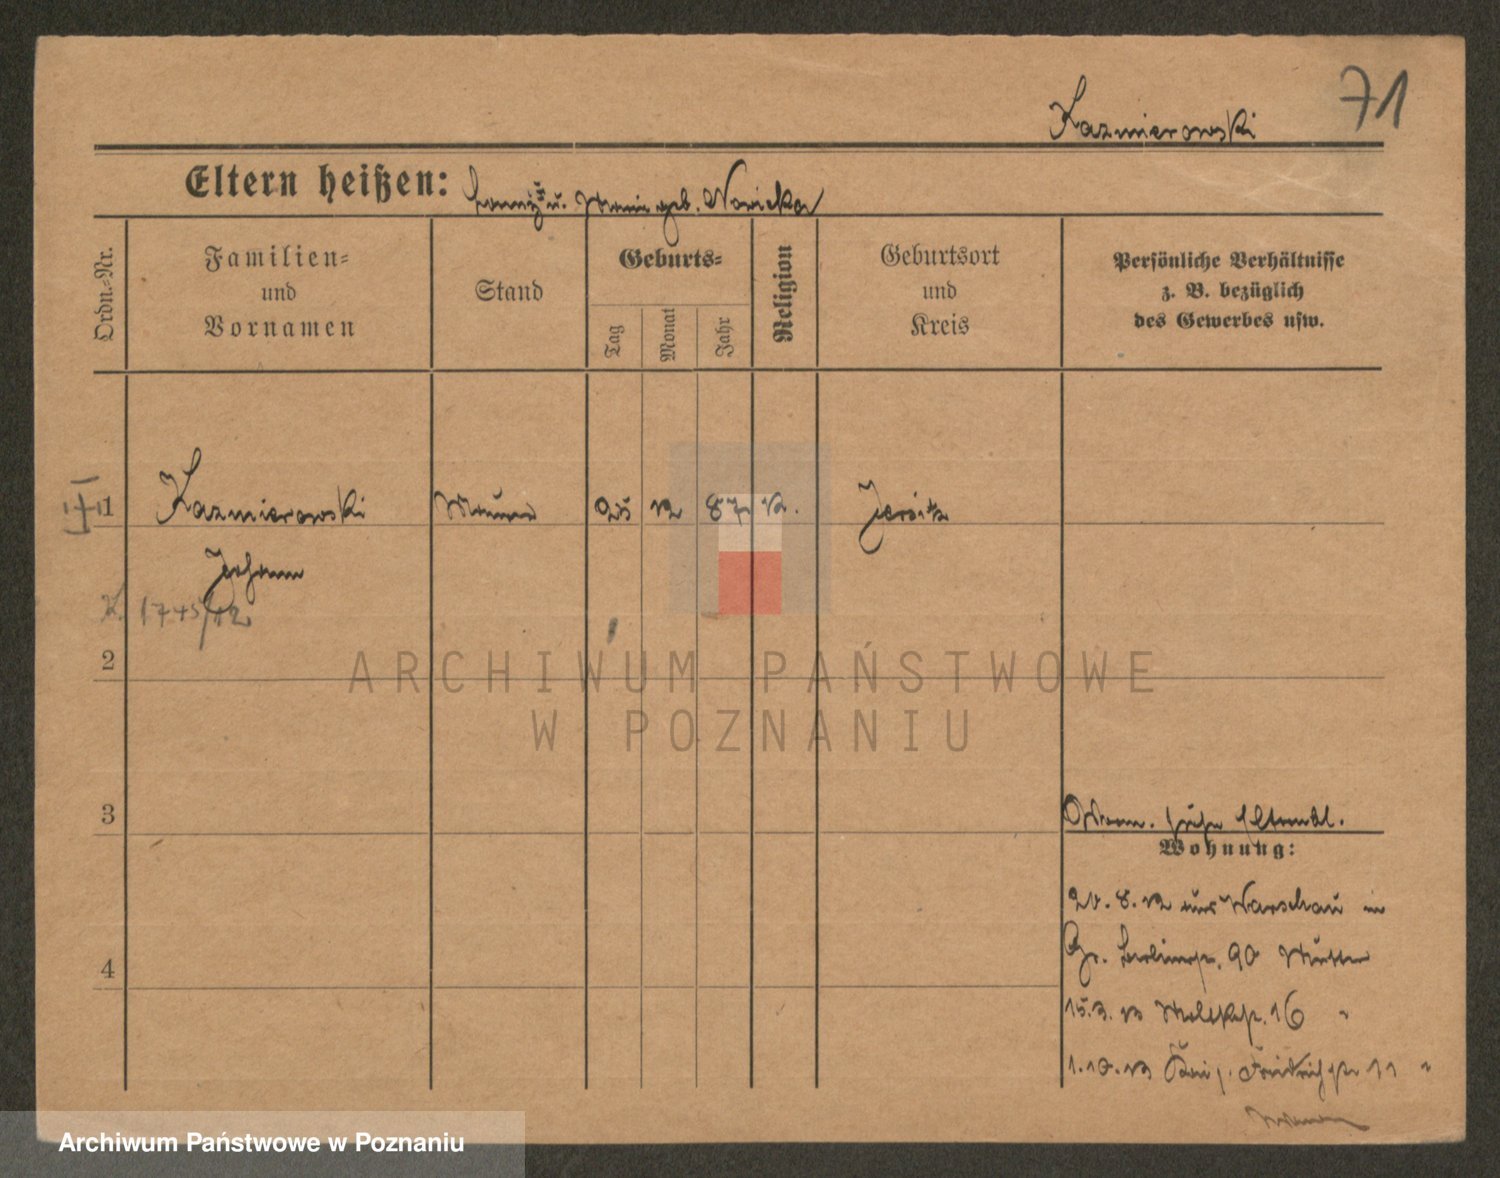 71
Kazmierowski
Eltern heißen: u. geb. Nowicka
Ordn.-Nr.
Familien-
und
Vornamen
Stand
Geburts-
Tag
Monat
Jahr
Religion
Geburtsort
und
Kreis
Persönliche Verhältnisse
z. B. bezüglich
des Gewerbes usw.
1 Kazmierowski 25 12 87 K. Jersitz
Johann
K. 1745/12
2
ARCHIWUM PAŃSTWOWE
W POZNANIU
3
Wohnung:
20. 8. 12 aus Warschau in
Gr. Berlinerstr. 90 Mutter
4
15.3. 13 Moltkestr. 16 "
1.10.13 Friedrichstr 11 "
Archiwum Państwowe w Poznaniu